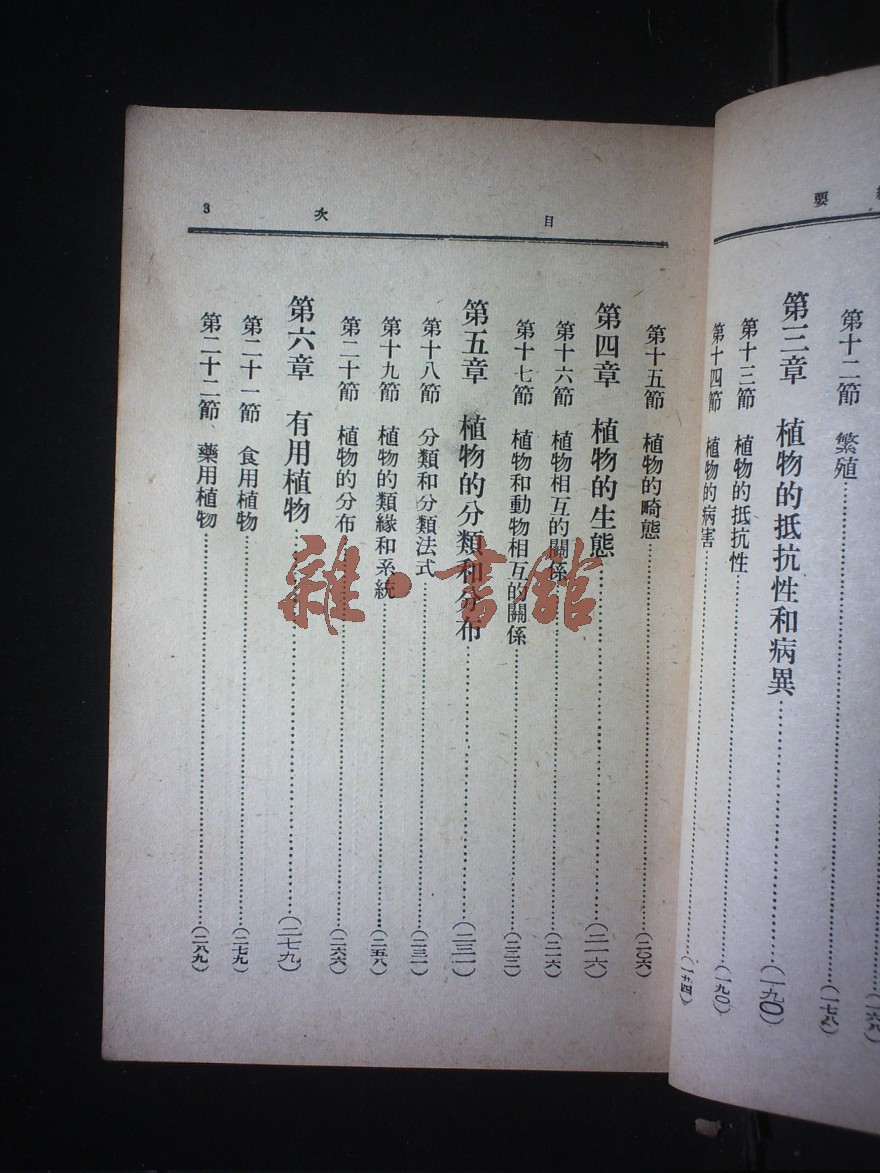 要
第十二節　繁殖……(一六八)
第三章　植物的抵抗性和病異……(一九〇)
第十三節　植物的抵抗性……(一九〇)
第十四節　植物的病害……(一九四)
目次　3
第十五節　植物的畸態……(二〇六)
第四章　植物的生態……(二一六)
第十六節　植物相互的關係……(二一六)
第十七節　植物和動物相互的關係……(二二二)
第五章　植物的分類和分布……(二三一)
第十八節　分類和分類法式……(二三一)
第十九節　植物的類緣和系統……(二五八)
第二十節　植物的分布……(二六六)
第六章　有用植物……(二七九)
第二十一節　食用植物……(二七九)
第二十二節　藥用植物……(二八九)
雜·書館